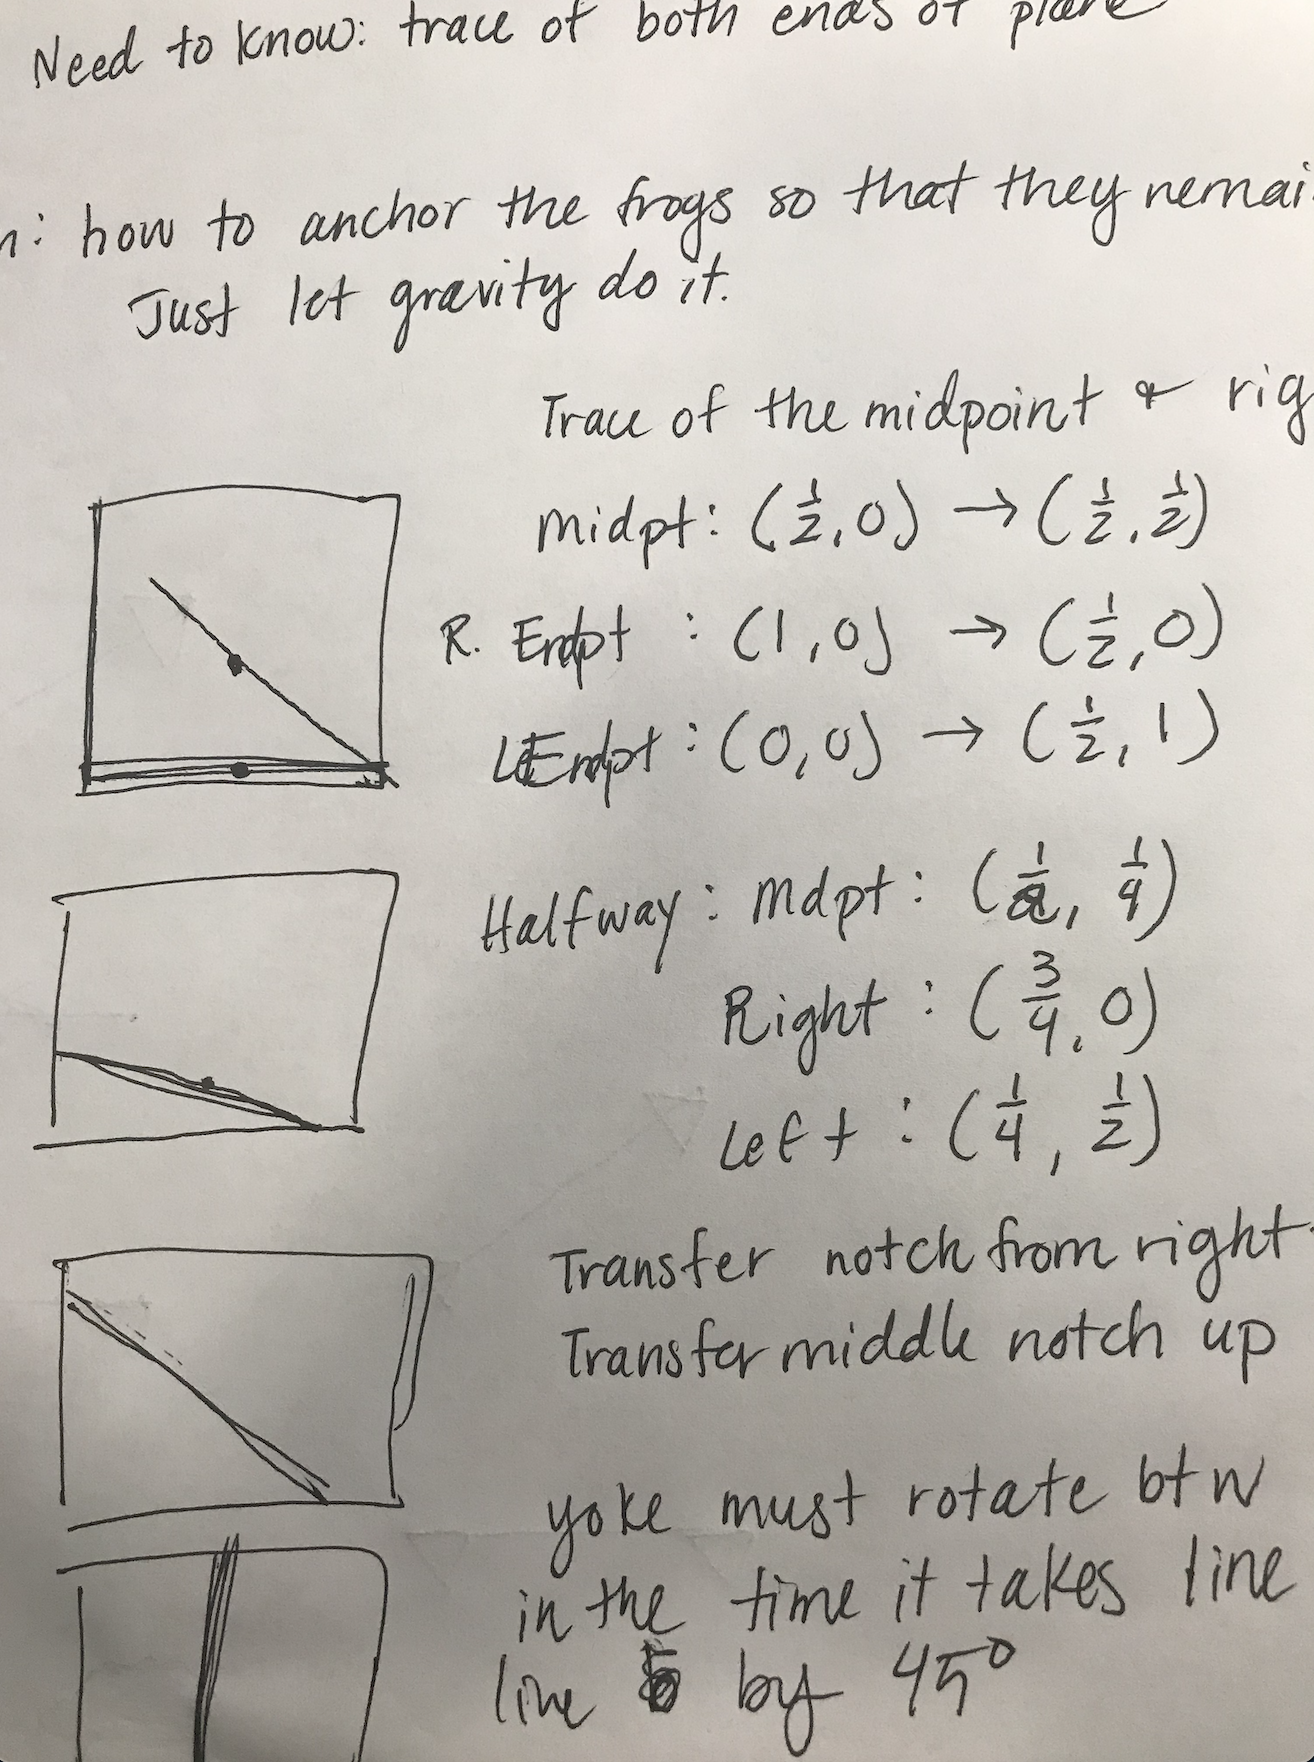 Need to know: trace of both ends of plane
n: how to anchor the frogs so that they remai
Just let gravity do it.
Trace of the midpoint & rig
midpt: (1/2, 0) → (1/2, 1/2)
R. Endpt : (1, 0) → (1/2, 0)
L Endpt : (0, 0) → (1/2, 1)
Halfway: mdpt: (1/2, 1/4)
Right : (3/4, 0)
Left : (1/4, 1/2)
Transfer notch from right
Transfer middle notch up
yoke must rotate btw
in the time it takes line
line by 45°